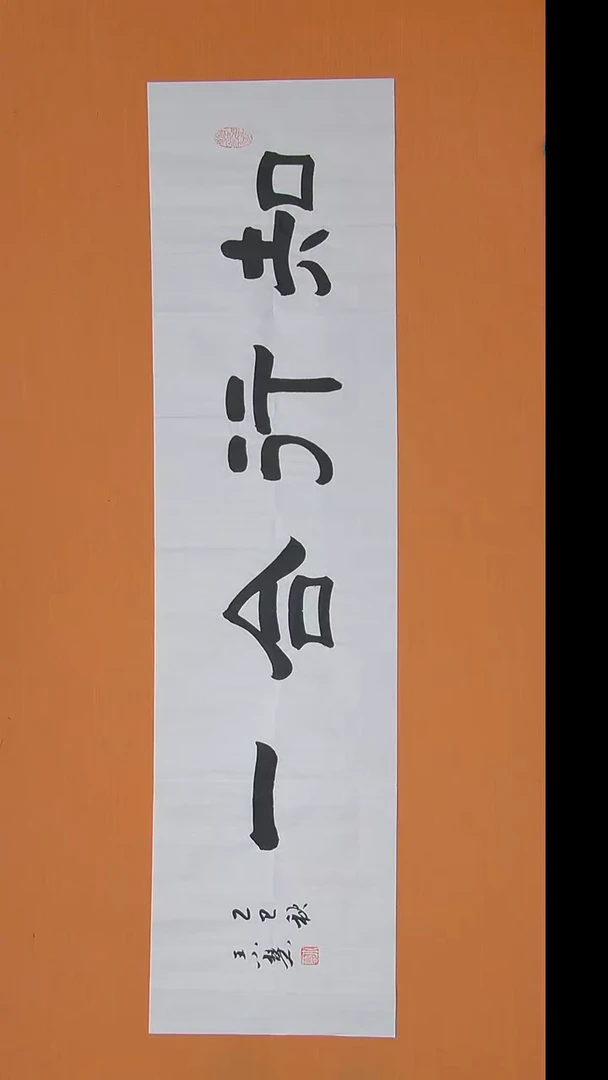 知行合一
乙巳秋
王